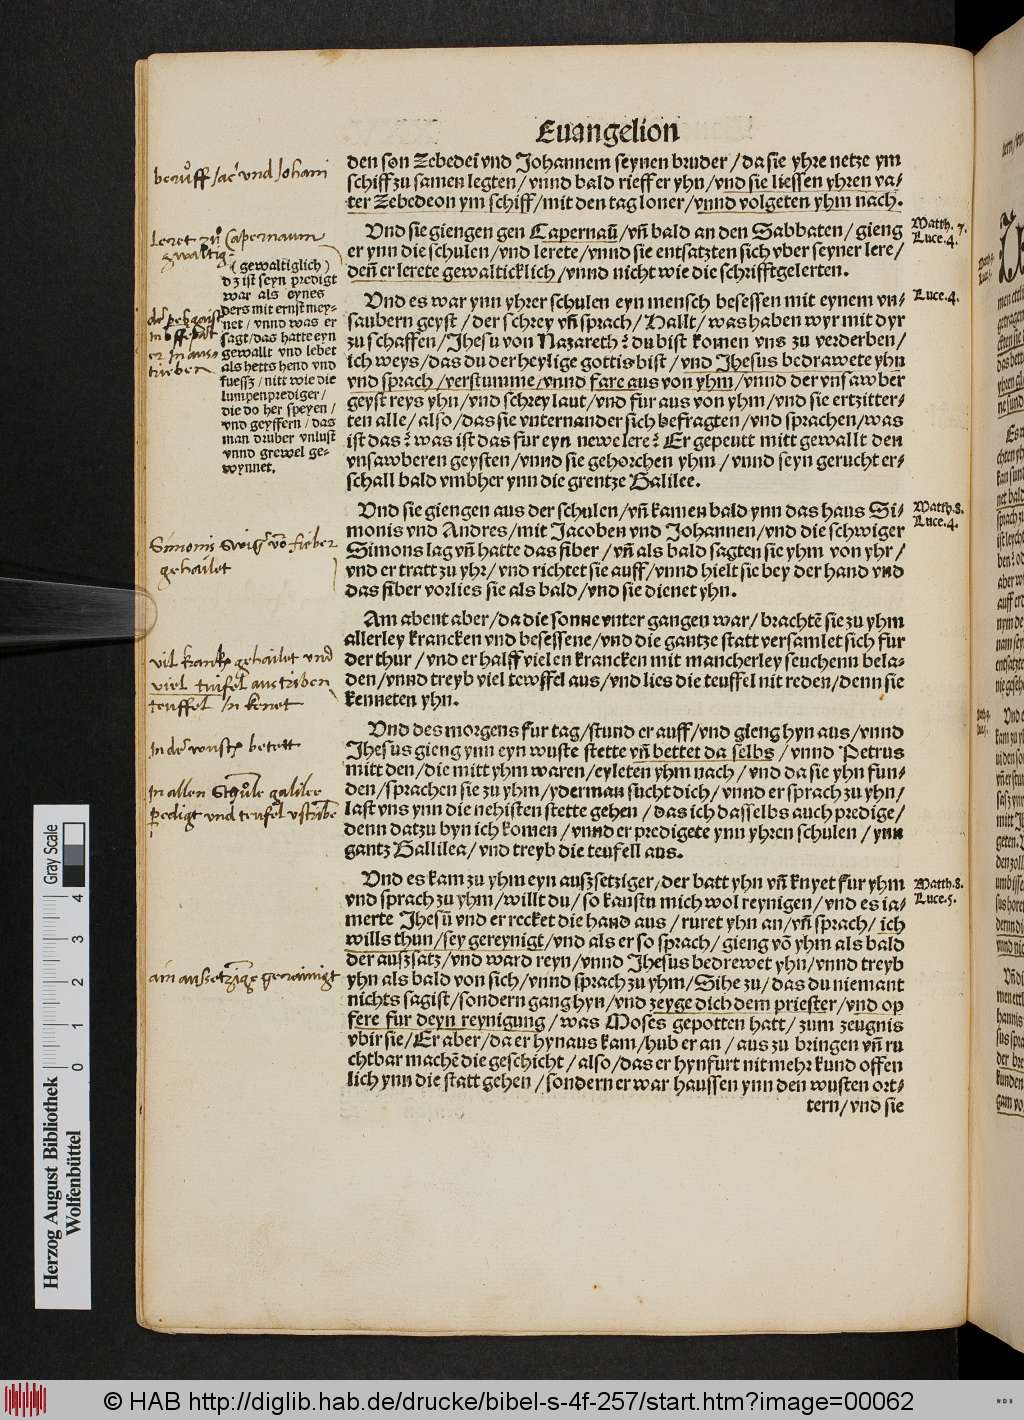 Euangelion
den son Zebedei vnd Johannem seynen bruder / da sie yhre netze ym
schiff zu samen legten / vnnd bald rieff er yhn / vnd sie liessen yhren va⸗
ter Zebedeon ym schiff / mit den tag loner / vnnd volgeten yhm nach.
Vnd sie giengen gen Capernaū / vn̄ bald an den Sabbaten / gieng
er ynn die schulen / vnd lerete / vnnd sie entsatzten sich vber seyner lere /
den̄ er lerete gewalticklich / vnnd nicht wie die schrifftgelerten.
Vnd es war ynn yhrer schulen eyn mensch besessen mit eynem vn⸗
saubern geyst / der schrey vn̄ sprach / Hallt / was haben wyr mit dyr
zu schaffen / Jhesu von Nazareth? du bist komen vns zu verderben /
ich weys / das du der heylige gottis bist / vnd Jhesus bedrawete yhn
vnd sprach / verstumme / vnnd fare aus von yhm / vnnd der vnsawber
geyst reys yhn / vnd schrey laut / vnd fur aus von yhm / vnd sie ertzitter⸗
ten alle / also / das sie vnternander sich befragten / vnd sprachen / was
ist das? was ist das fur eyn newe lere? Er gepeutt mitt gewallt den
vnsawberen geysten / vnnd sie gehorchen yhm / vnnd seyn gerucht er⸗
schall bald vmbher ynn die grentze Galilee.
Vnd sie giengen aus der schulen / vn̄ kamen bald ynn das haus Si⸗
monis vnd Andres / mit Jacoben vnd Johannen / vnd die schwiger
Simons lag vn̄ hatte das fiber / vn̄ als bald sagten sie yhm von yhr /
vnd er tratt zu yhr / vnd richtet sie auff / vnnd hielt sie bey der hand vnd
das fiber vorlies sie als bald / vnd sie dienet yhn.
Am abent aber / da die sonne vnter gangen war / brachtē sie zu yhm
allerley krancken vnd besessene / vnd die gantze statt versamlet sich fur
der thur / vnd er halff vielen krancken mit mancherley seuchenn bela⸗
den / vnnd treyb viel tewffel aus / vnd lies die teuffel nit reden / denn sie
kenneten yhn.
Vnd des morgens fur tag / stund er auff / vnd gieng hyn aus / vnnd
Jhesus gieng ynn eyn wuste stette vn̄ bettet da selbs / vnnd Petrus
mitt den / die mitt yhm waren / eyleten yhm nach / vnd da sie yhn fun⸗
den / sprachen sie zu yhm / yderman sucht dich / vnnd er sprach zu yhn /
last vns ynn die nehisten stette gehen / das ich dasselbs auch predige /
denn datzu byn ich komen / vnnd er predigete ynn yhren schulen / ynn
gantz Gallilea / vnd treyb die teufell aus.
Vnd es kam zu yhm eyn auszsetziger / der batt yhn vn̄ knyet fur yhm
vnd sprach zu yhm / willt du / so kanstu mich wol reynigen / vnd es ia⸗
merte Jhesū vnd er recket die hand aus / ruret yhn an / vn̄ sprach / ich
wills thun / sey gereynigt / vnd als er so sprach / gieng vō yhm als bald
der auszsatz / vnd ward reyn / vnnd Jhesus bedrewet yhn / vnnd treyb
yhn als bald von sich / vnnd sprach zu yhm / Sihe zu / das du niemant
nichts sagist / sondern gang hyn / vnd zeyge dich dem priester / vnd op
fere fur deyn reynigung / was Moses gepotten hatt / zum zeugnis
vbir sie / Er aber / da er hynaus kam / hub er an / aus zu bringen vn̄ ru
chtbar machē die geschicht / also / das er hynfurt nit mehr kund offen
lich ynn die statt gehen / sondern er war haussen ynn den wusten ort⸗
tern / vnd sie
Matth. 7.
Luce. 4.
Luce. 4.
Matth. 8.
Luce. 4.
Matth. 8.
Luce. 5.
(gewaltiglich)
dz ist seyn predigt
war als eynes
ders mit ernst mey⸗
net / vnnd was er
sagt / das hatte eyn
gewallt vnd lebet
als hetts hend vnd
fuessz / nitt wie die
lumpenprediger /
die do her speyen /
vnd geyffern / das
man druber vnlust
vnnd grewel ge⸗
wynnet.
beruff Jac vnd Johani
Leret zu Capernaum
gwaltig
Simonis swigr vō fieber
gehailet
vil krank gehailet vnd
viel tuifel austriben
teuffel in kenet
In der wusth betett
In allen Schule galilee
ain aussetzige gerainigt
Herzog August Bibliothek
Wolfenbüttel
Gray Scale
0 1 2 3 4
© HAB http://diglib.hab.de/drucke/bibel-s-4f-257/start.htm?image=00062